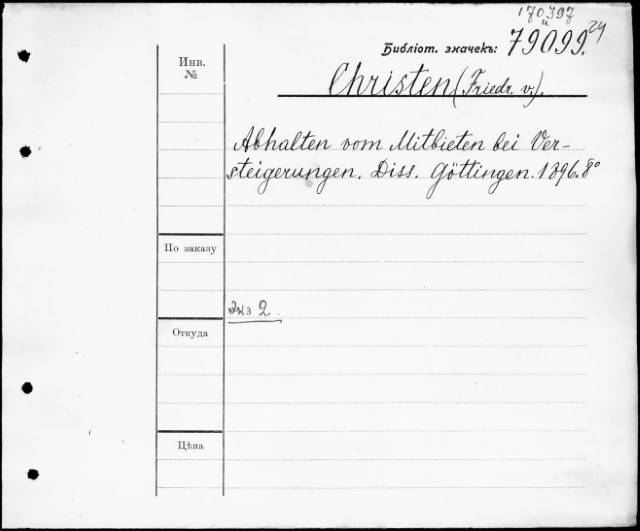 170397
и
Библіот. значекъ: 79099. 24
Инв.
№
Christen (Friedr. v.).
Abhalten vom Mitbieten bei Ver-
steigerungen. Diss. Göttingen. 1896. 8°
По заказу
Экз 2.
Откуда
Цѣна